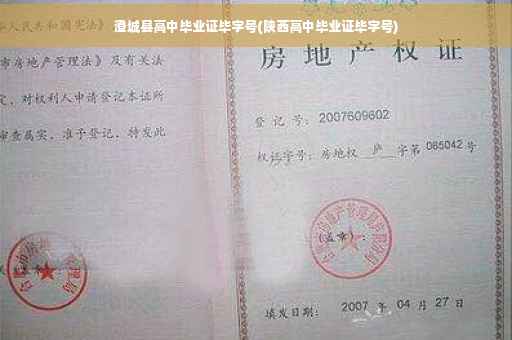 澄城县高中毕业证毕字号(陕西高中毕业证毕字号)
人民共和国宪法》
市房地产管理法》及有关
定，对权利人申请登记本证所
审查属实，准予登记，特发此
房地产权证
登记号：2007609602
权证字号：房地权 庐 字第 065042 号
(盖章)：
填发日期： 2007 年 04 月 27 日